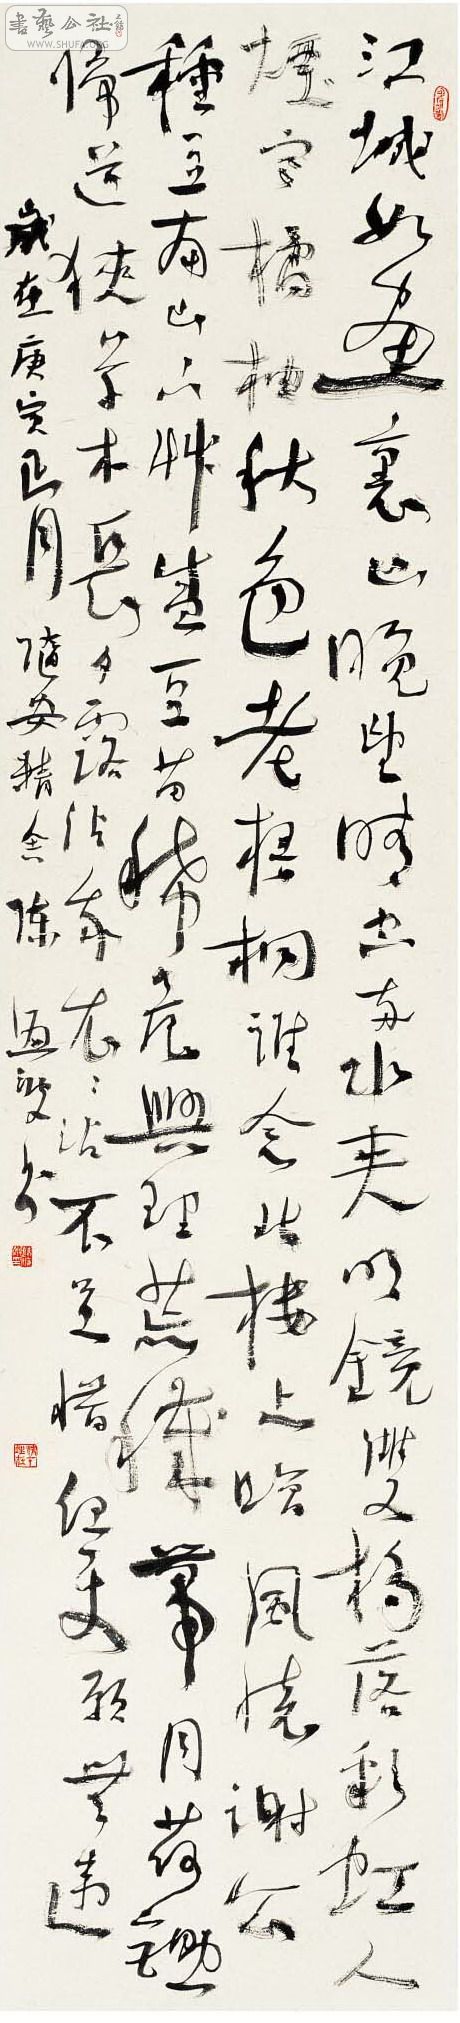 書藝公社
WWW.SHUFA.ORG
江城如畫裏山晚望晴空兩水夾明鏡雙橋落彩虹人
煙寒橘柚秋色老梧桐誰念北樓上臨風懷謝公
種豆南山下艸盛豆苗稀晨興理荒穢帶月荷鋤
歸道狹草木長夕露沾我衣〻沾不足惜但使願無違
歲在庚寅正月隨安精舍陳 書